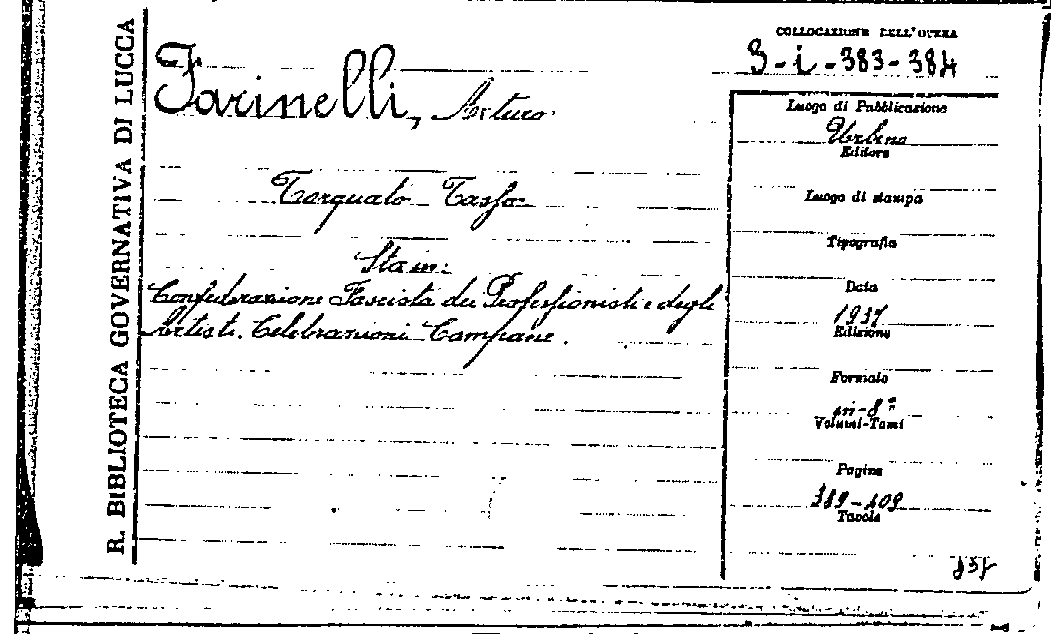 R. BIBLIOTECA GOVERNATIVA DI LUCCA
Farinelli, Arturo
Torquato Tasso
Sta in:
Confederazione Fascista dei Professionisti e degli
Artisti. Celebrazioni Campane.
COLLOCAZIONE DELL'OPERA
3-i-383-384
Luogo di Pubblicazione
Urbino
Editore
Luogo di stampa
Tipografia
Data
1937
Edizione
Formato
in-8º
Volumi-Tomi
Pagine
389-409
Tavole